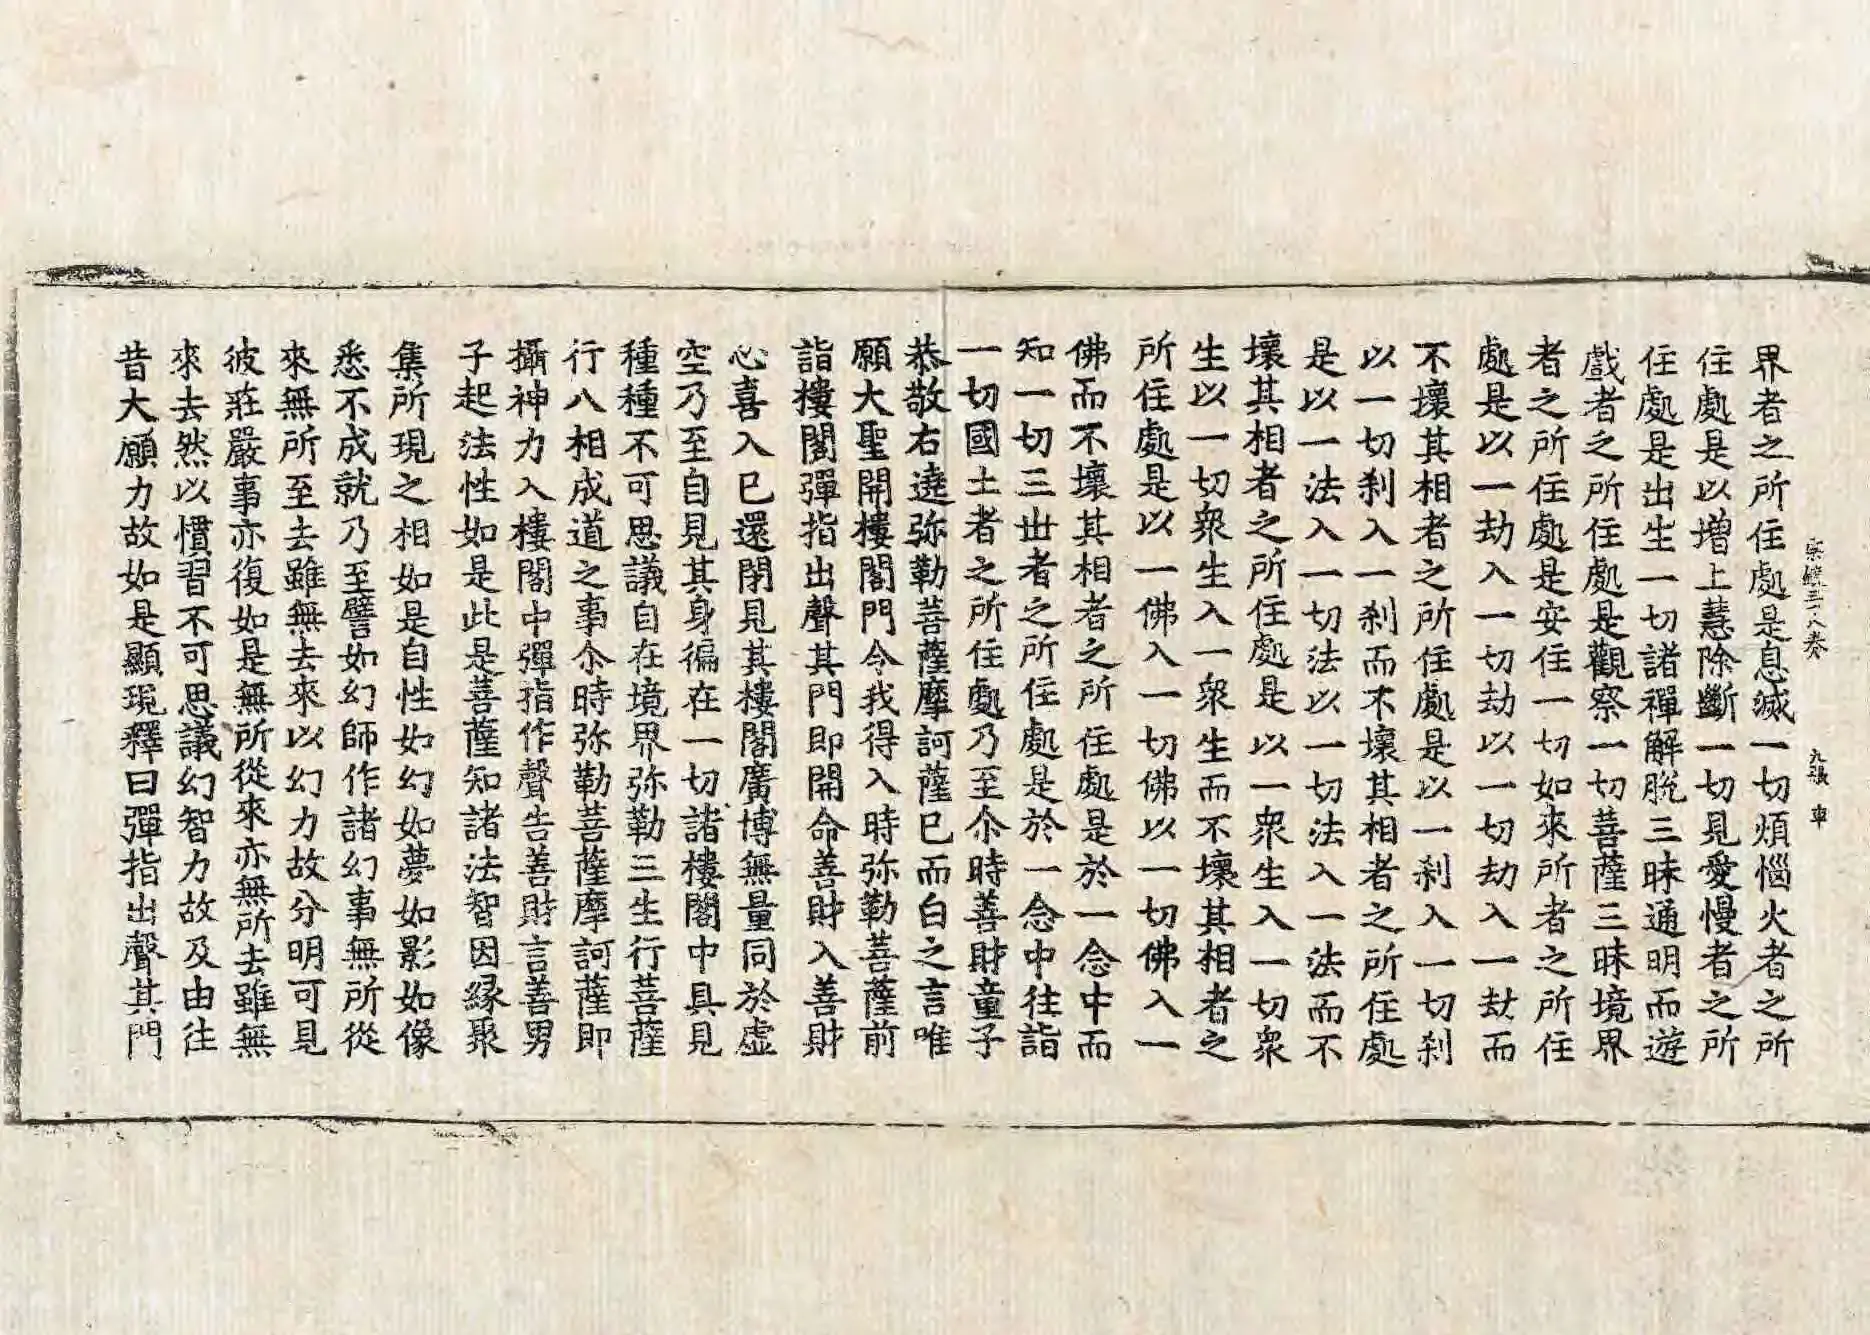 宗鏡三十八卷 九張 車
界者之所住處是息滅一切煩惱火者之所
住處是以增上慧除斷一切見愛慢者之所
住處是出生一切諸禪解脫三昧通明而遊
戲者之所住處是觀察一切菩薩三昧境界
者之所住處是安住一切如來所者之所住
處是以一劫入一切劫以一切劫入一劫而
不壞其相者之所住處是以一刹入一切刹
以一切刹入一刹而不壞其相者之所住處
是以一法入一切法以一切法入一法而不
壞其相者之所住處是以一衆生入一切衆
生以一切衆生入一衆生而不壞其相者之
所住處是以一佛入一切佛以一切佛入一
佛而不壞其相者之所住處是於一念中而
知一切三世者之所住處是於一念中往詣
一切國土者之所住處乃至尒時善財童子
恭敬右遶弥勒菩薩摩訶薩已而白之言唯
願大聖開樓閣門令我得入時弥勒菩薩前
詣樓閣彈指出聲其門即開命善財入善財
心喜入已還閉見其樓閣廣博無量同於虛
空乃至自見其身徧在一切諸樓閣中具見
種種不可思議自在境界弥勒三生行菩薩
行八相成道之事尒時弥勒菩薩摩訶薩即
攝神力入樓閣中彈指作聲告善財言善男
子起法性如是此是菩薩知諸法智因緣聚
集所現之相如是自性如幻如夢如影如像
悉不成就乃至譬如幻師作諸幻事無所從
來無所至去雖無去來以幻力故分明可見
彼莊嚴事亦復如是無所從來亦無所去雖無
來去然以慣習不可思議幻智力故及由往
昔大願力故如是顯現釋曰彈指出聲其門